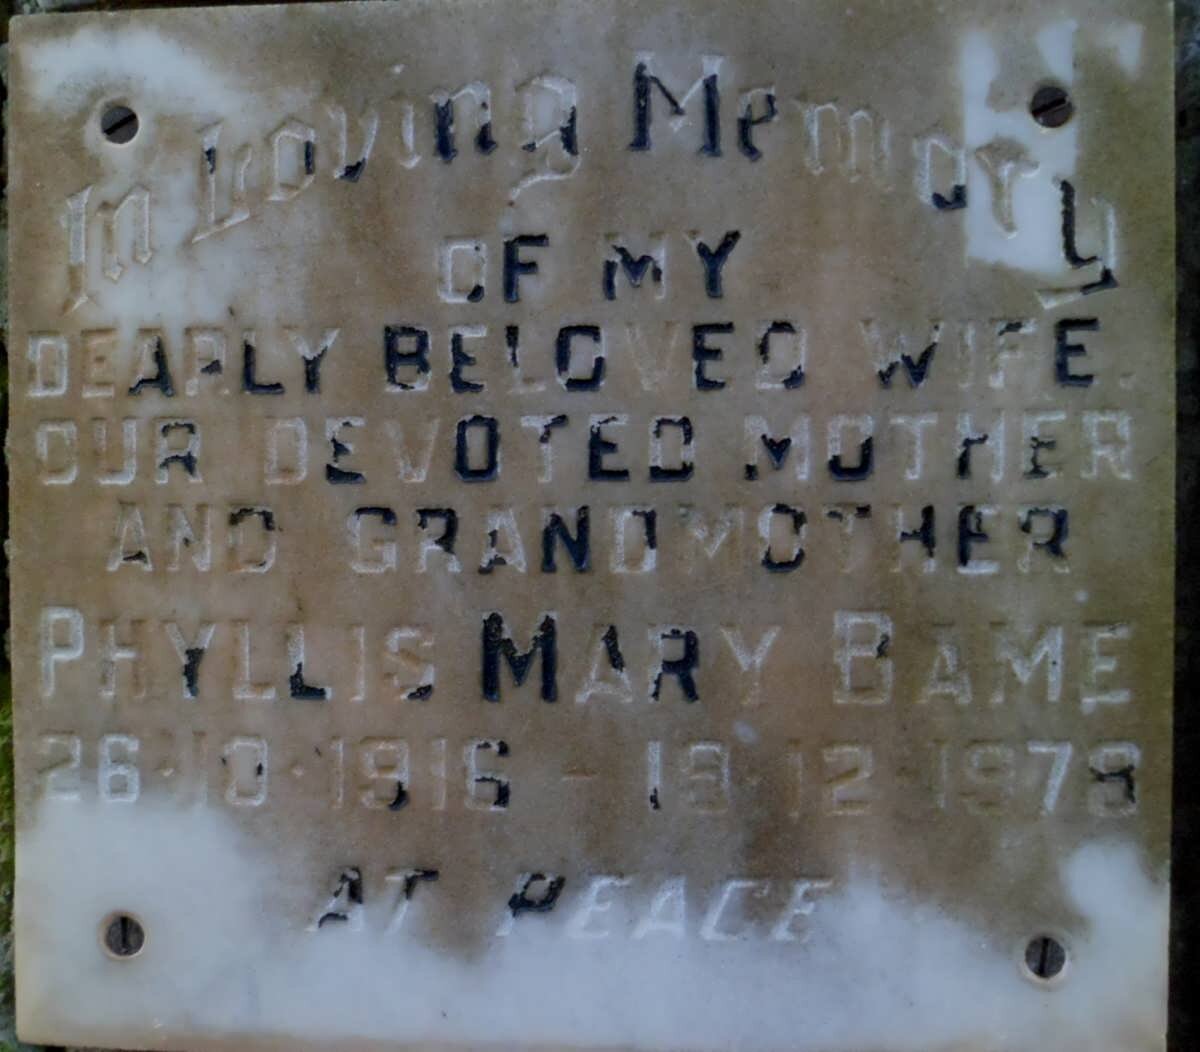 In Loving Memory
OF MY
DEARLY BELOVED WIFE.
OUR DEVOTED MOTHER
AND GRANDMOTHER
PHYLLIS MARY BAME
26·10·1916 – 18·12·1978
AT PEACE